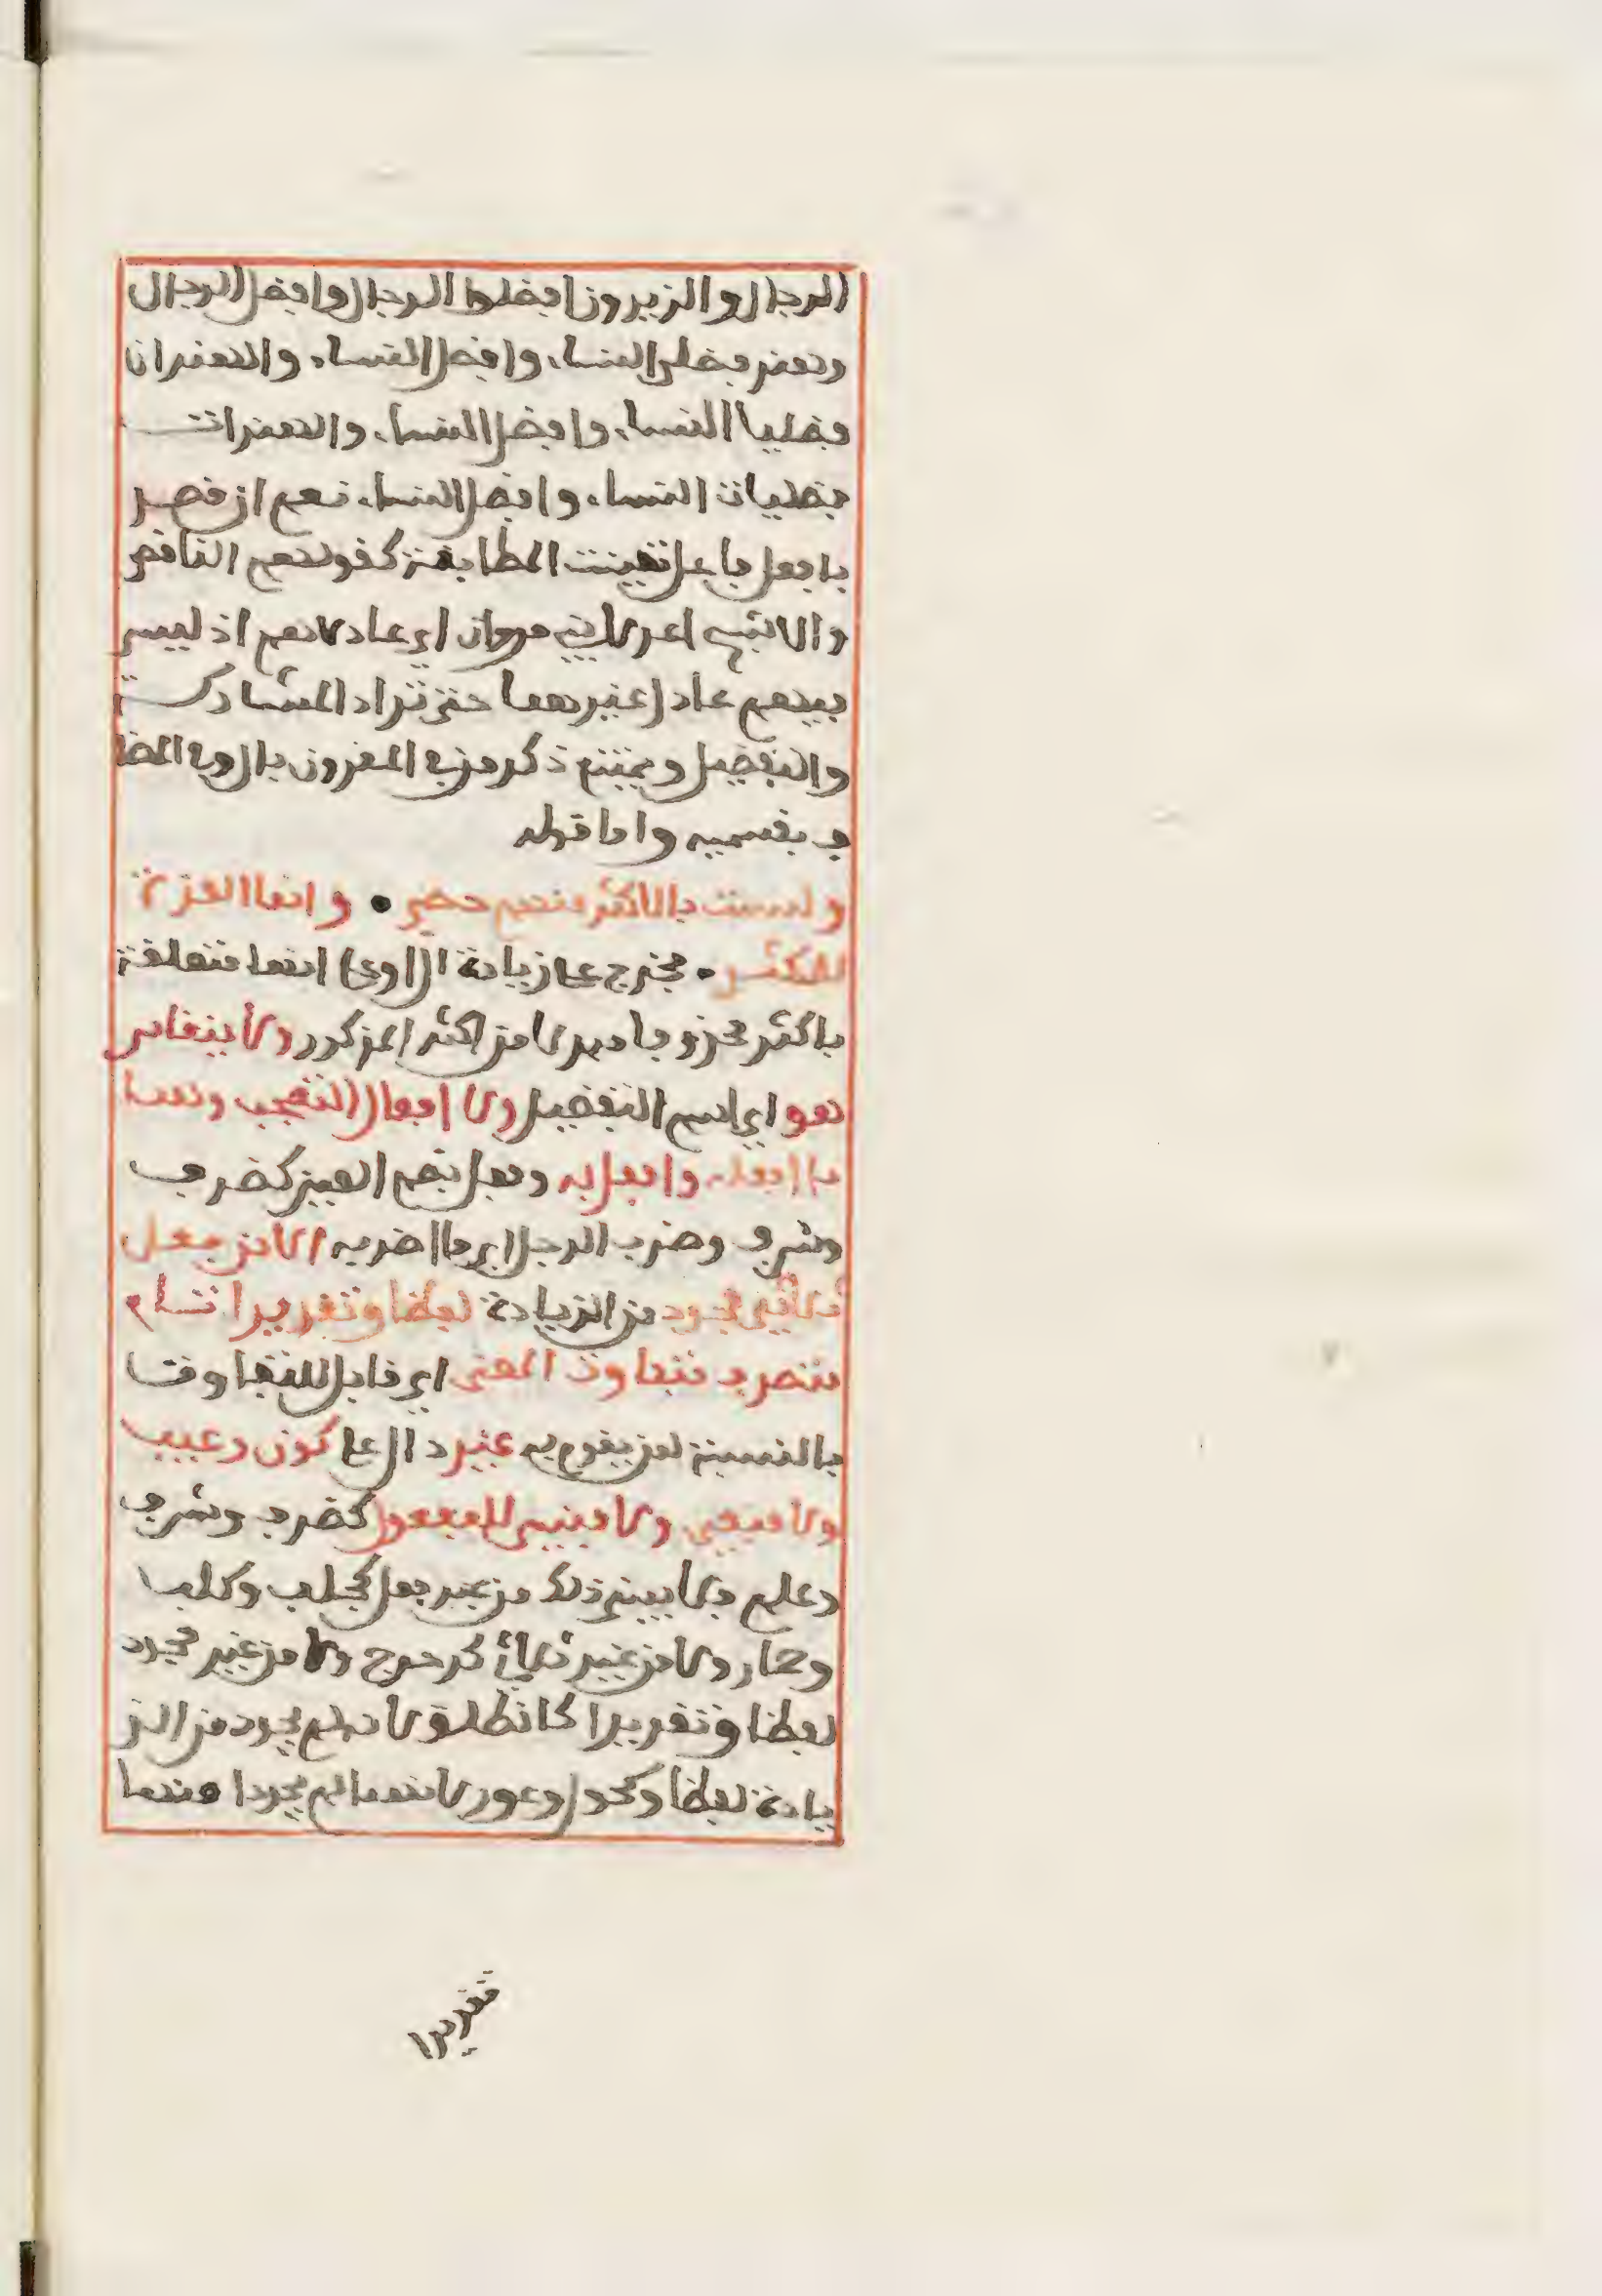 الرجال والزيدون افضلوا الرجال وافضل الرجال
وهند فضلى النساء، وافضل النساء، والهندان
فضليا النساء، وافضل النساء، والهندات
فضليات النساء، وافضل النساء، نعم ان قصد
بافعل فاعل تعينت المطابقة كقولهم الناقص
والاشج اعدلا بني مروان اي عادلاهم اذ ليس
فيهم عادل غيرهما حتى تراد المشاركة
والتفضيل ويمتنع ذكر من في المقرون بال وفي المضا
ف بقسميه واما قوله
ولست بالاكثر منهم حصى • وانما العزة
للكثر • فخرج على زيادة ال او على انها متعلقة
باكثر محذوفا مبدلا من اكثر المذكور ولا ينقاس
هو اي اسم التفضيل ولا افعال التعجب وهما
ما افعله وافعل به وفعل بضم العين كضرف
وشرف وضرب الرجل اي ما اضربه الا من فعل
ثلاثي مجرد من الزيادة لفظا وتقديرا تام
متصرف متفاوت المعنى اي قابل للتفاوت
بالنسبة لمن يقوم به غير دال على لون وعيب
ولا منفي ولا مبني للمفعول كضرف وشرف
وعلم فلا يبنى ذلك من غير فعل كجلف وكلب
وحمار ولا من غير ثلاثي كدحرج ولا من غير مجرد
لفظا وتقديرا كانطلق لانه لم يجرد من الز
يادة لفظا وكحول وعور لانهما لم يجردا منها
تقديرا